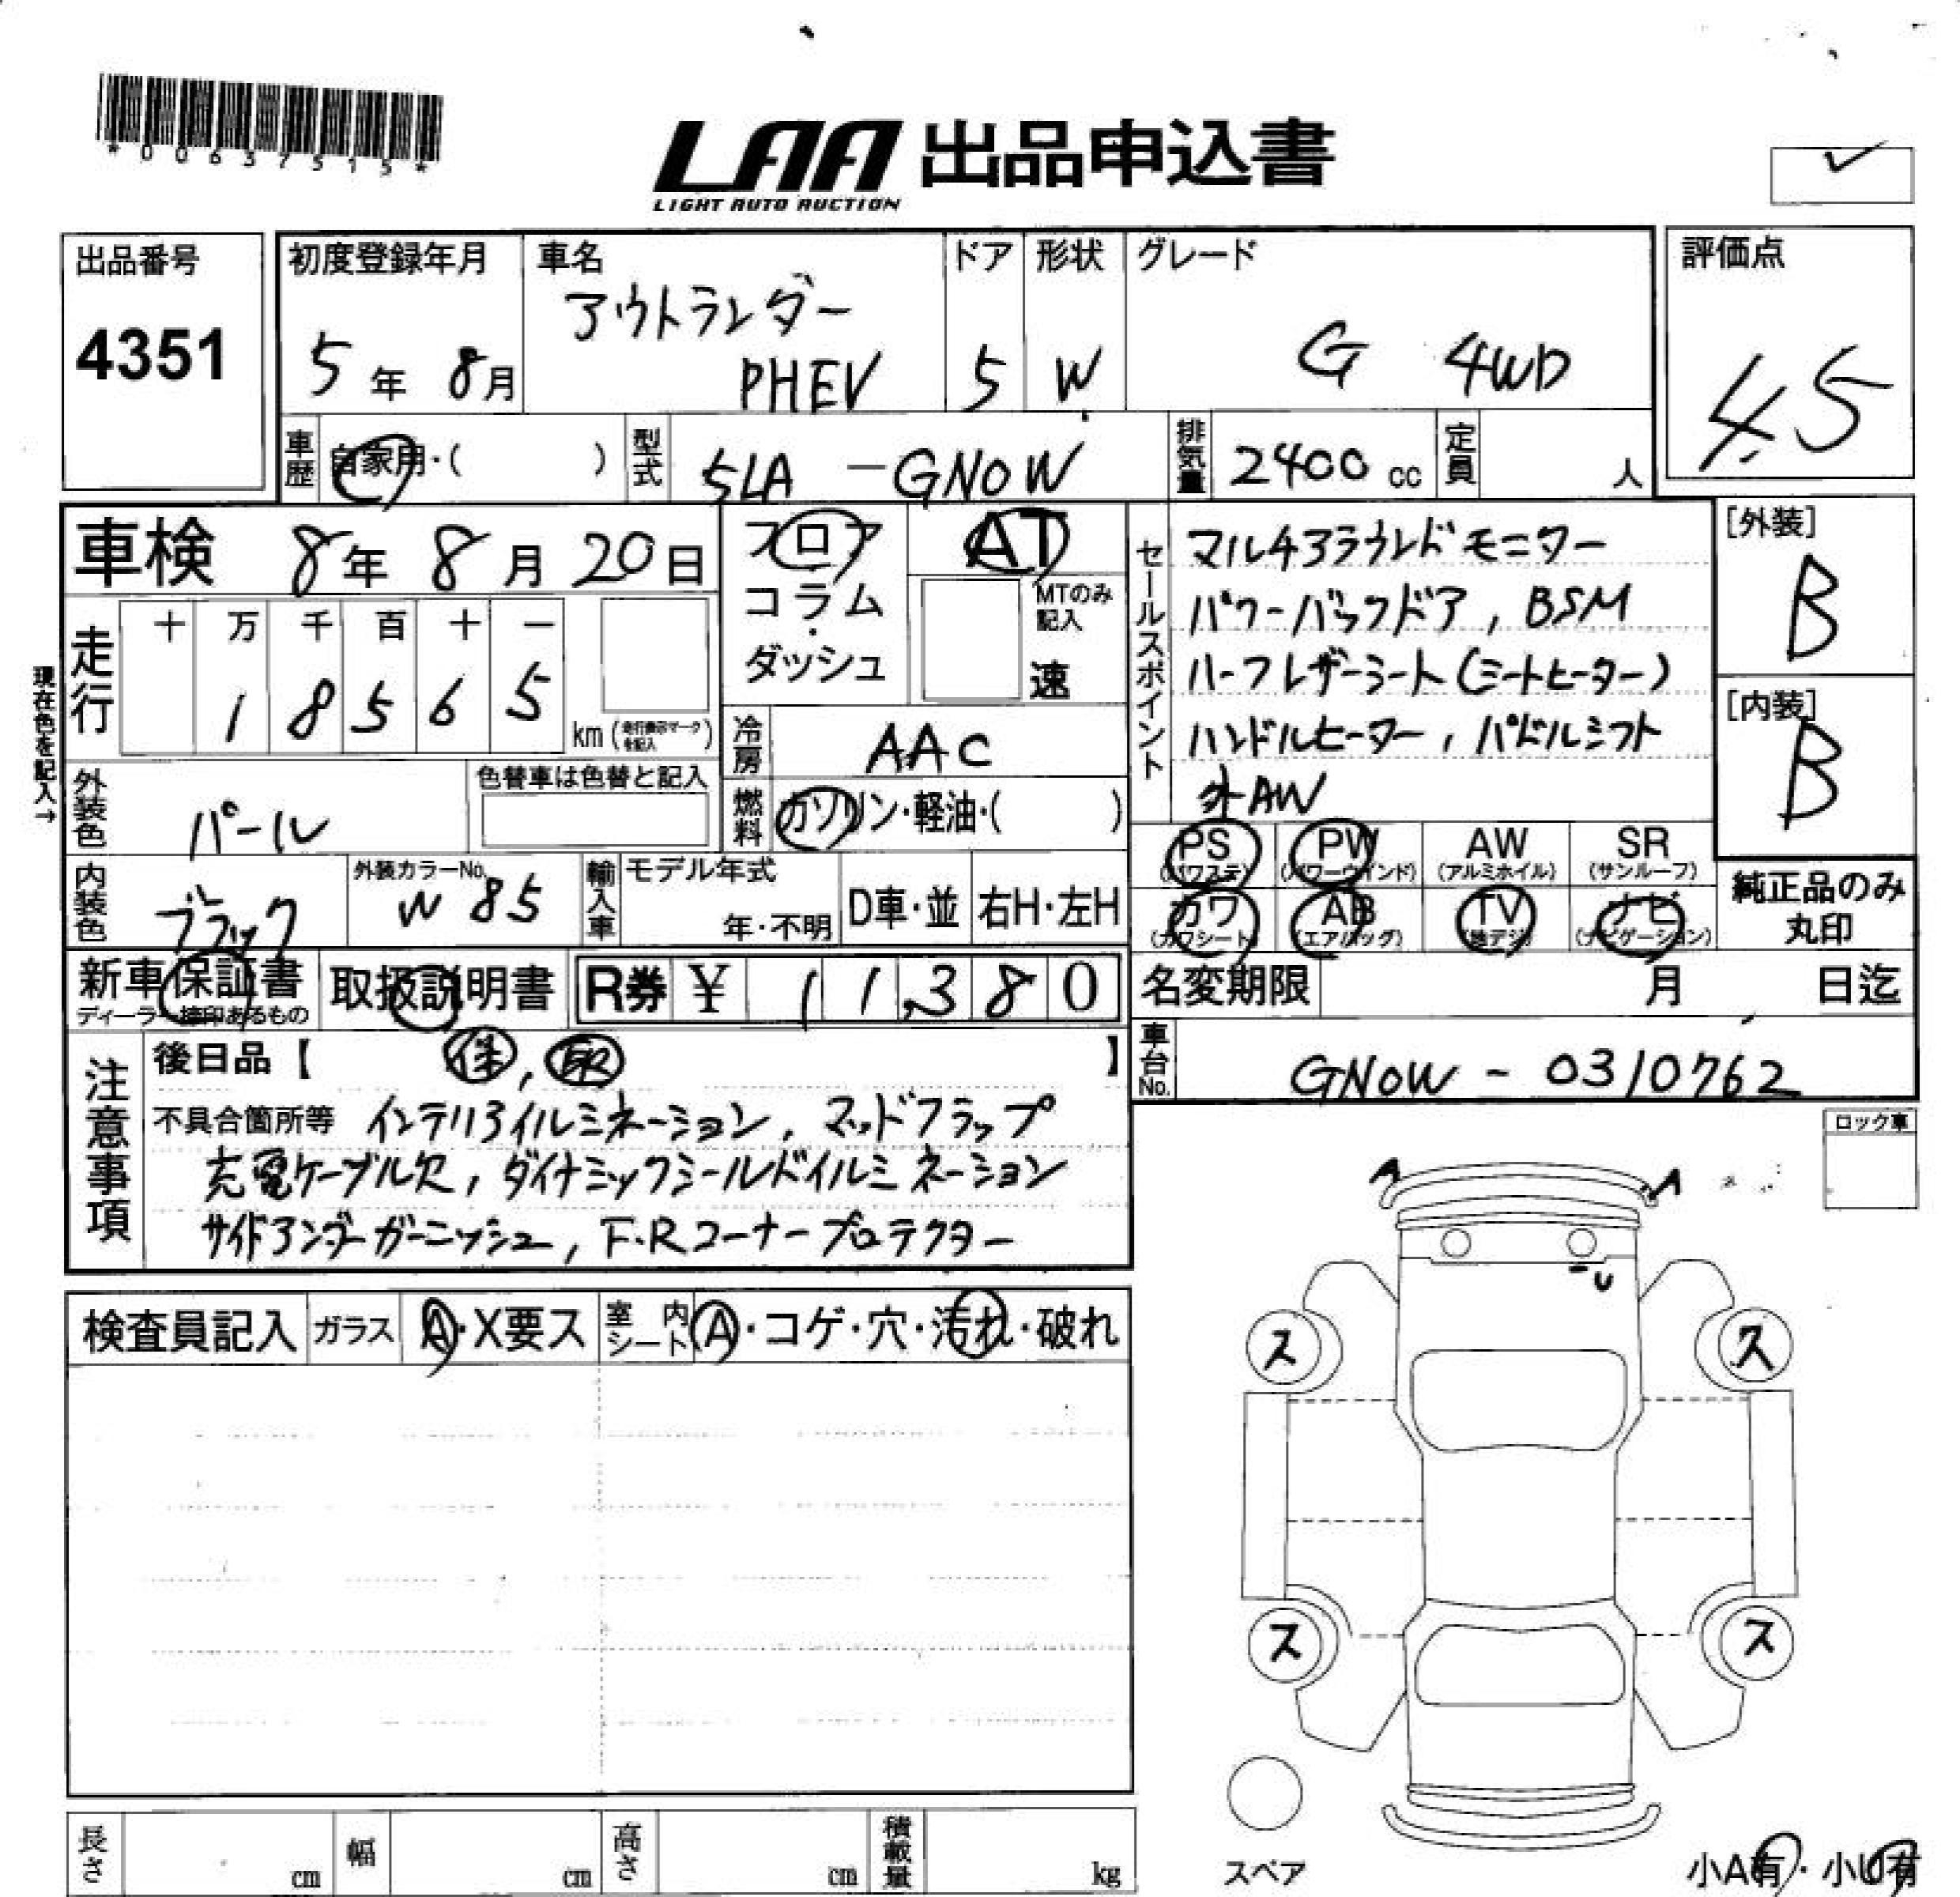 *00637515*
LAA 出品申込書
LIGHT AUTO AUCTION
出品番号
4351
初度登録年月
5年 8月
車名
アウトランダー
PHEV
ドア
5
形状
W
グレード
G 4WD
評価点
4.5
車歴
自家用・( )
型式
5LA -GN0W
排気量
2400 cc
定員
人
車検 8年 8月 20日
走行
十 万 千 百 十 一
1 8 5 6 5
km (走行表示マークを記入)
現在色を記入→
外装色
パール
色替車は色替と記入
内装色
ブラック
外装カラーNo.
W85
フロア
コラム・
ダッシュ
AT
MTのみ記入
速
冷房
AAC
燃料
ガソリン・軽油・( )
輸入車
モデル年式
年・不明
D車・並
右H・左H
セールスポイント
マルチアラウンドモニター
パワーバックドア, BSM
ハーフレザーシート(シートヒーター)
ハンドルヒーター, パドルシフト
外AW
[外装]
B
[内装]
B
PS
(パワステ)
PW
(パワーウインド)
AW
(アルミホイル)
SR
(サンルーフ)
カワ
(カワシート)
AB
(エアバッグ)
TV
(地デジ)
ナビ
(ナビゲーション)
純正品のみ
丸印
新車保証書
ディーラー捺印あるもの
取扱説明書
R券 ¥ 11,380
名変期限
月 日迄
車台No.
GN0W - 0310762
注意事項
後日品【 保, 取 】
不具合箇所等 インテリアイルミネーション, マッドフラップ
充電ケーブル欠, ダイナミックシールドイルミネーション
サイドアンダーガーニッシュ, F・Rコーナープロテクター
ロック車
A A
U
ス ス
ス ス
検査員記入
ガラス
A・X要ス
室内シート
A・コゲ・穴・汚れ・破れ
長さ
cm
幅
cm
高さ
cm
積載量
kg
スペア
小A有・小U有